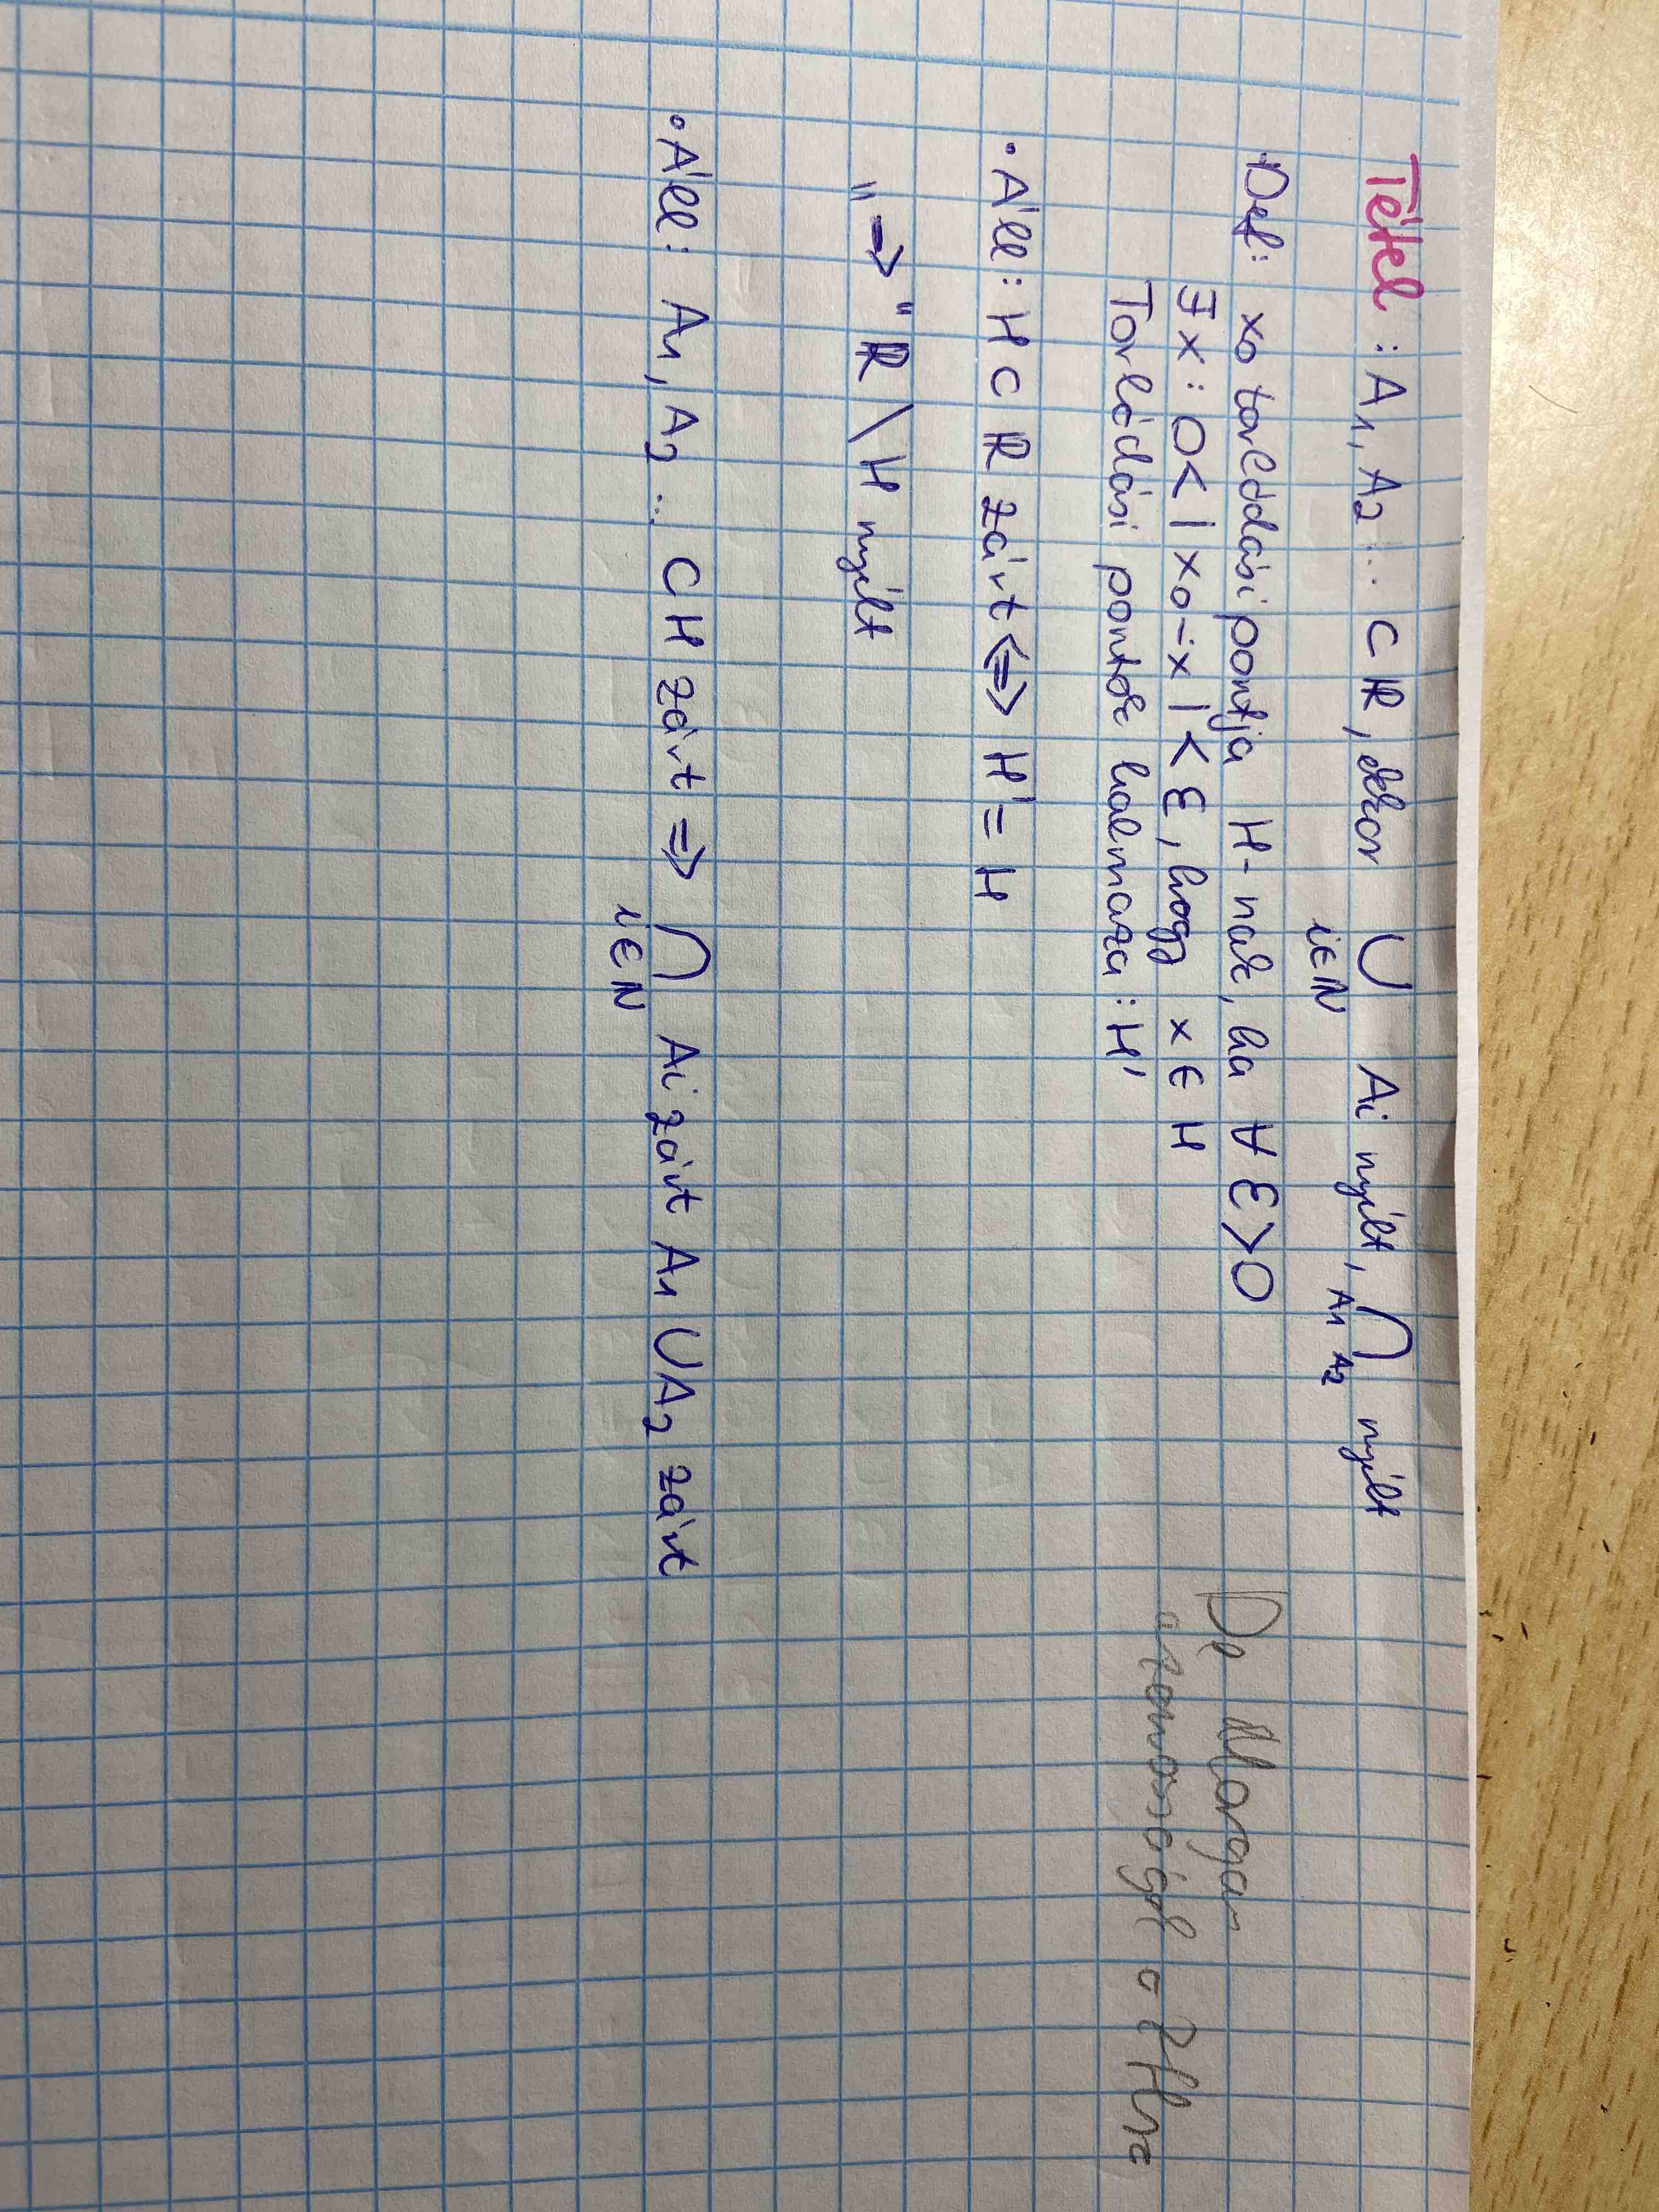 Tétel: A₁, A₂... ⊂ ℝ, ekkor ⋃ Aᵢ nyílt, ⋂ nyílt
i∈ℕ A₁ A₂
•Def: x₀ torlódási pontja H-nak, ha ∀ ε>0
∃x: 0<|x₀-x|<ε, hogy x∈H
Torlódási pontok halmaza: H'
De Morgan
azonosságok
• Áll: H ⊂ ℝ zárt ⇔ H'=H
"⇒" ℝ\H nyílt
• Áll: A₁, A₂... ⊂ H zárt ⇒ ⋂ Aᵢ zárt A₁ ∪ A₂ zárt
i∈ℕ